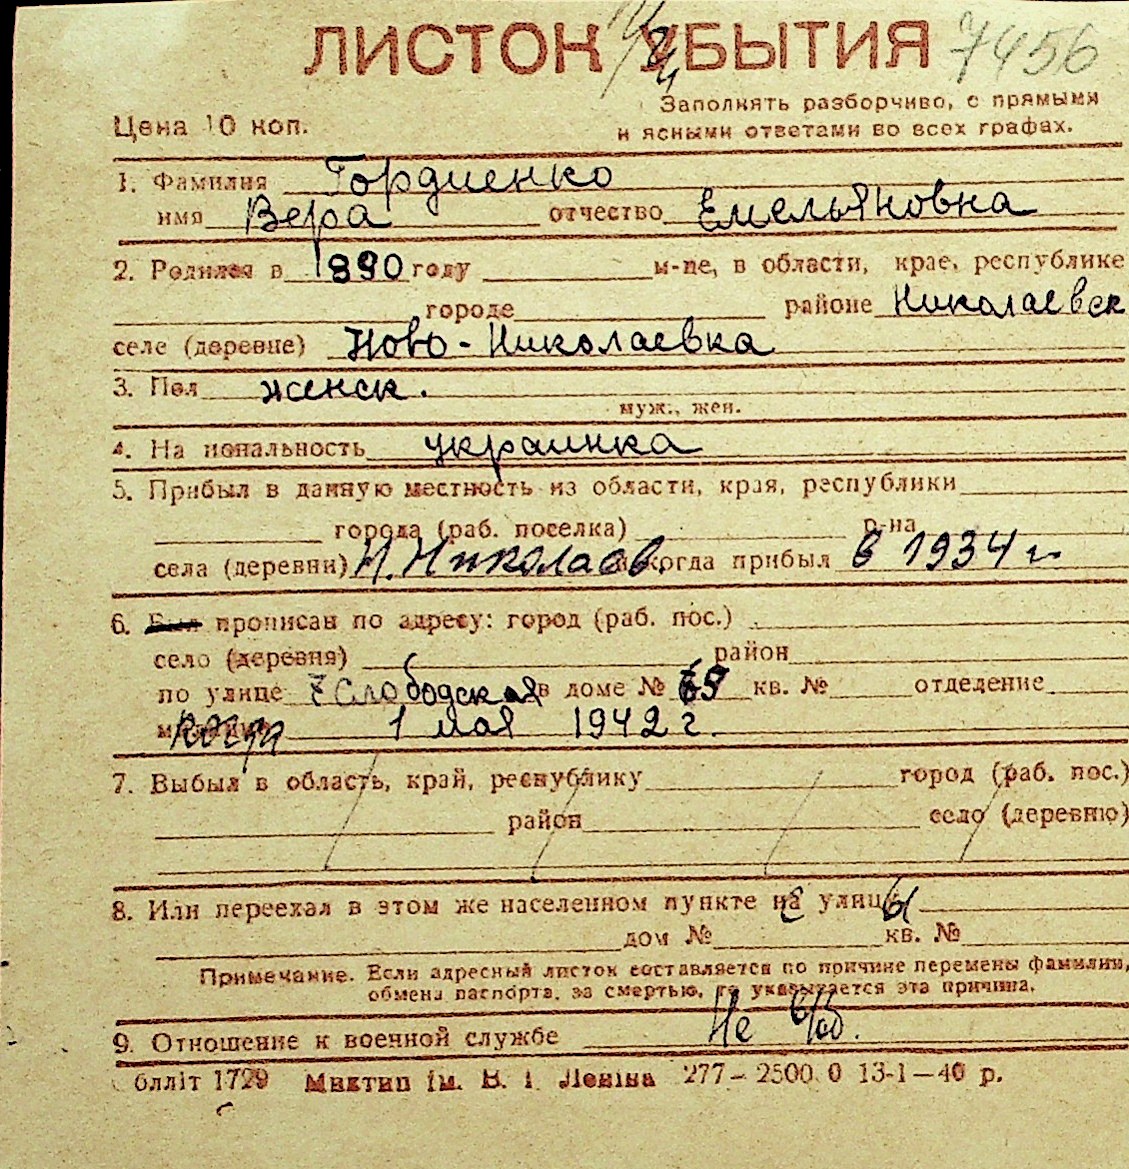 ЛИСТОК УБЫТИЯ 7456
Заполнять разборчиво, с прямыми
Цена 10 коп.
и ясными ответами во всех графах.
1. Фамилия Гордиенко
имя Вера отчество Емельяновна
2. Родился в 1890 году м-це, в области, крае, республике
городе районе Николаевск
селе (деревне) Ново-Николаевка
3. Пол женск.
муж., жен.
4. Национальность украинка
5. Прибыл в данную местность из области, края, республики
города (раб. поселка) р-на
села (деревни) Н. Николаев. когда прибыл в 1934 г.
6. прописан по адресу: город (раб. пос.)
село (деревня) район
по улице Слободская в доме № кв. № отделение
когда 1 мая 1942 г.
7. Выбыл в область, край, республику город (раб. пос.)
район село (деревню)
8. Или переехал в этом же населенном пункте улицы
дом № кв. №
Примечание. Если адресный листок составляется по причине перемены фамилии,
обмена паспорта, за смертью, то указывается эта причина.
9. Отношение к военной службе Не
блліт 1729 Миктип ім. В. І. Леніна 277-2500.0 13-1-40 р.